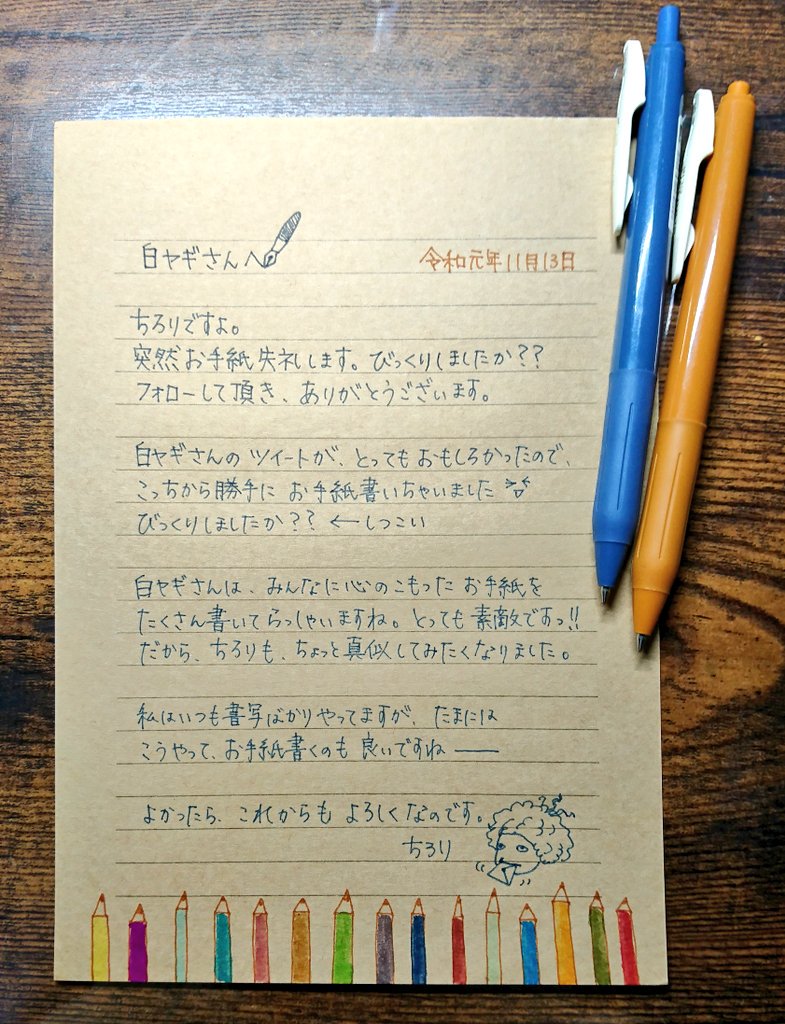 白ヤギさんへ
令和元年11月13日
ちろりですよ。
突然お手紙失礼します。びっくりしましたか??
フォローして頂き、ありがとうございます。
白ヤギさんのツイートが、とってもおもしろかったので、
こっちから勝手にお手紙書いちゃいました
びっくりしましたか?? ←しつこい
白ヤギさんは、みんなに心のこもったお手紙を
たくさん書いてらっしゃいますね。とっても素敵ですっ!!
だから、ちろりも、ちょっと真似してみたくなりました。
私はいつも書写ばかりやってますが、たまには
こうやって、お手紙書くのも良いですね――
よかったら、これからもよろしくなのです。
ちろり